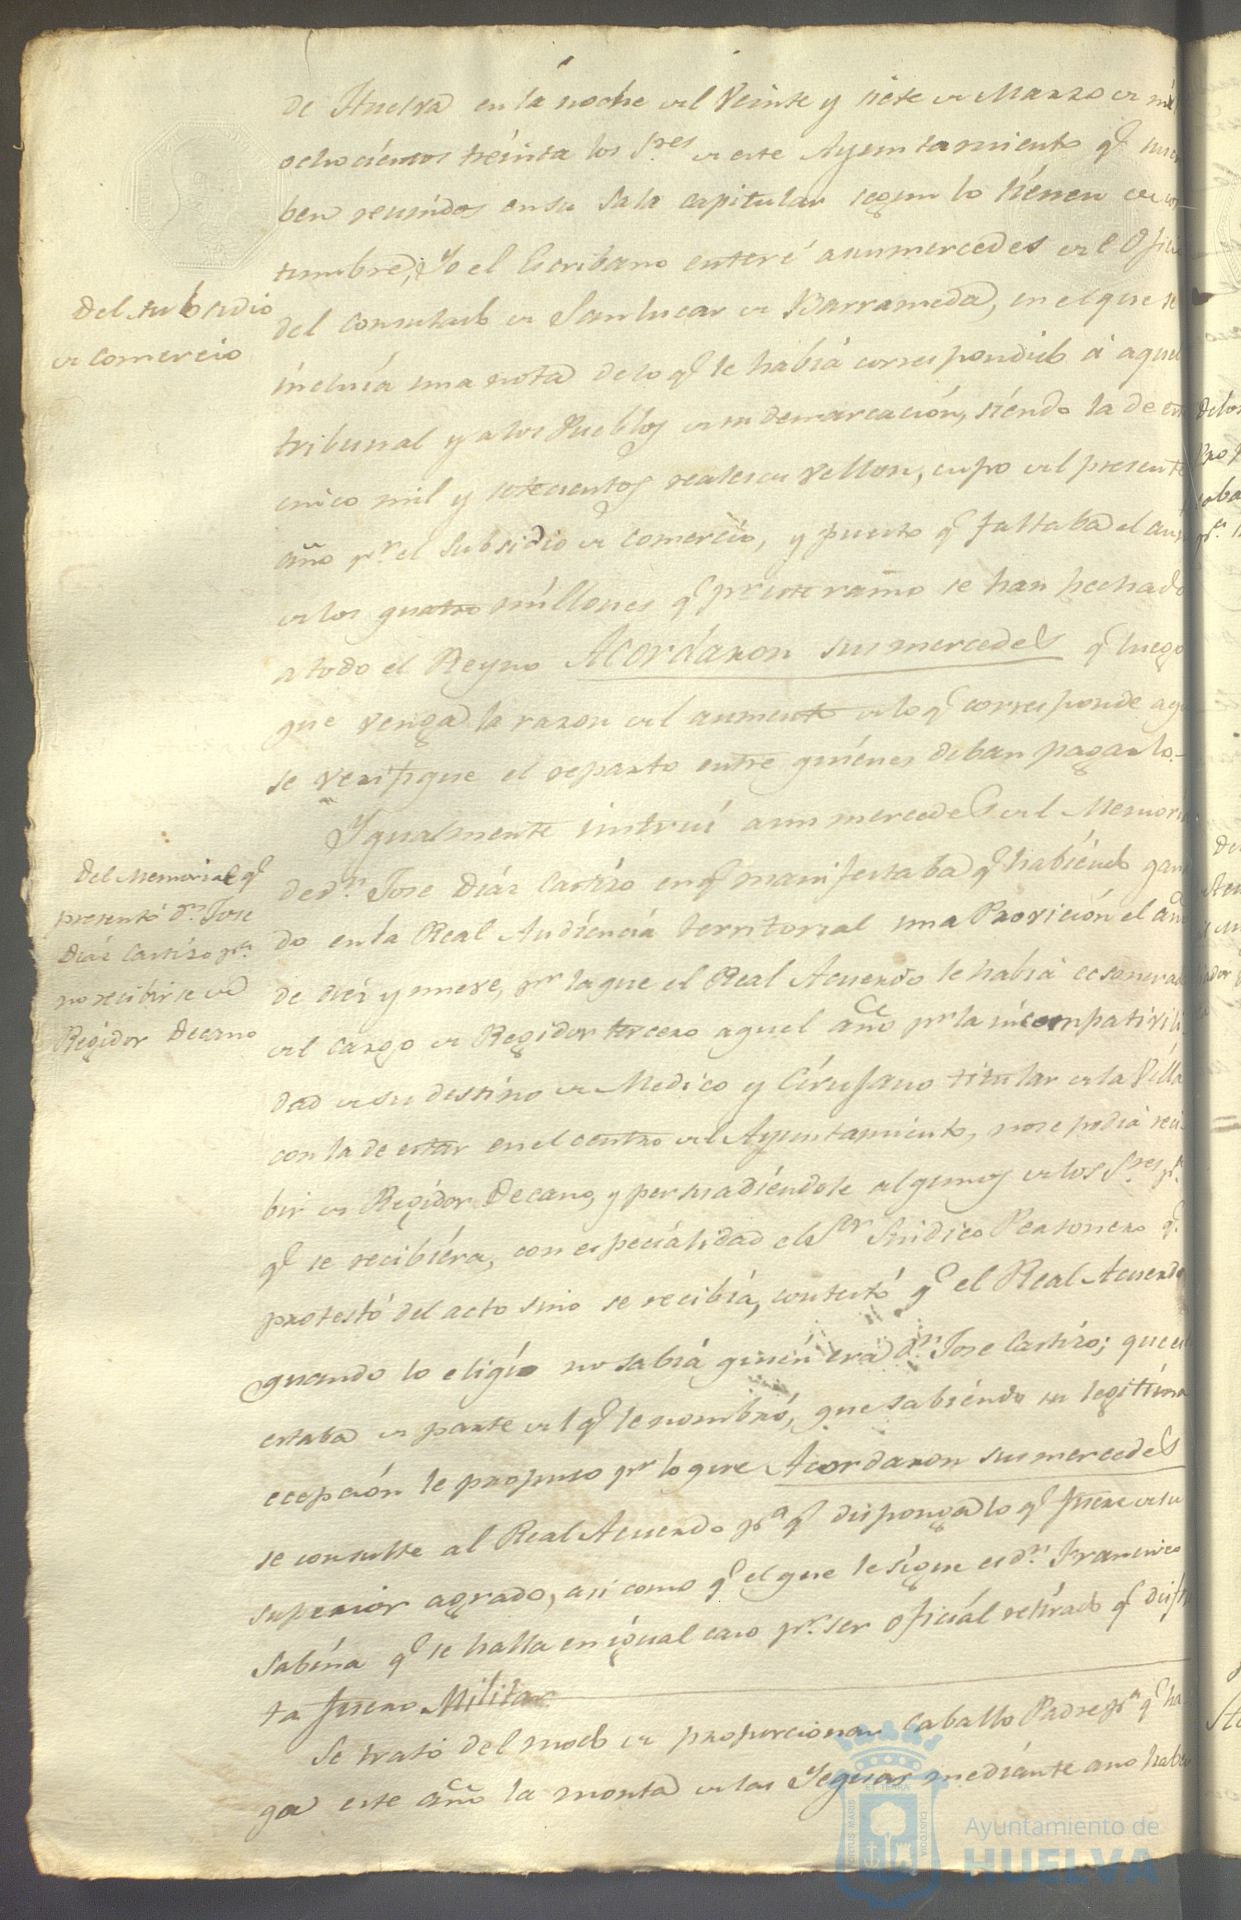 de Huelva en la noche del Veinte y siete de Marzo de mil
ochocientos treinta los Sres de este Ayuntamiento q.e suscri
ben reunidos en su Sala capitular segun lo tienen de cos-
tumbre, Yo el Escribano enteré a sus mercedes del Oficio
Del subsidio
de comercio
del consulado de Sanlucar de Barrameda, en el que se
incluía una nota de lo q.e le habiá correspondido á aquel
tribunal y a los Pueblos de su demarcación, siéndo la de esta
cinco mil y setecientos reales de vellon, cupo del presente
año p.r el Subsidio de comercio, y puesto q.e faltaba el aum
de los quatro millones q.e p.r este ramo se han hechado
a todo el Reyno Acordaron sus mercedes q.e luego
que venga la razon del aumento de lo q.e corresponde aqui
se verifique el reparto entre quiénes deban pagarlo.-
Ygualmente instruí a sus mercedes del Memoria
Del Memorial q.e
presentó D.n Jose
Diáz Castizo p.a
no recibirse de
Regidor Decano
de d.n Jose Diáz Castizo en q.e manifestaba q.e habiéndo gana
do en la Real Audiéncia territorial una Provición el año
de diéz y nueve, p.r la que el Real Acuerdo le habiá ecsonerado
del cargo de Regidor tercero aquel año p.r la incompativili
dad de su destino de Medico y Cirujano titular de la Villa
con la de estar en el centro del Ayuntamiento, no se podiá reci-
bir de Regidor Decano, y persuadiéndole algunos de los S.res p.a
q.e se recibiéra, con especiálidad el S.or Sindico Personero q.e
protestó del acto sino se recibiá, contestó q.e el Real Acuerdo
quando lo eligío no sabiá quién era D.n Jose Castizo; que es
estaba de parte del q.e le nombró, que sabiéndo su legitima
ecepción le propuso p.r lo que Acordaron sus mercedes
se consulte al Real Acuerdo p.a q.e disponga lo q.e fuere de su
superior agrado, asi como q.e el que le sigue es d.n Francisco
Sabína q.e se halla en igual caso p.r ser oficiál retirado q.e disfru
ta fuero Militar
Se trató del modo de proporcionar caballo Padre p.a q.e ha
ga este año la monta de las Yeguas mediánte a no haber
Ayuntamiento de
HUELVA